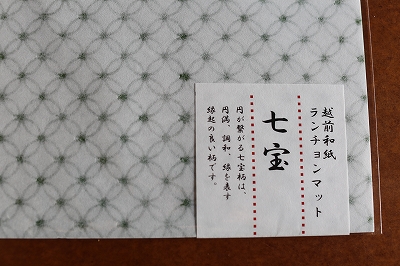 越前和紙
ランチョンマット
七宝
円が繋がる七宝柄は、
円満、調和、縁を表す
縁起の良い柄です。